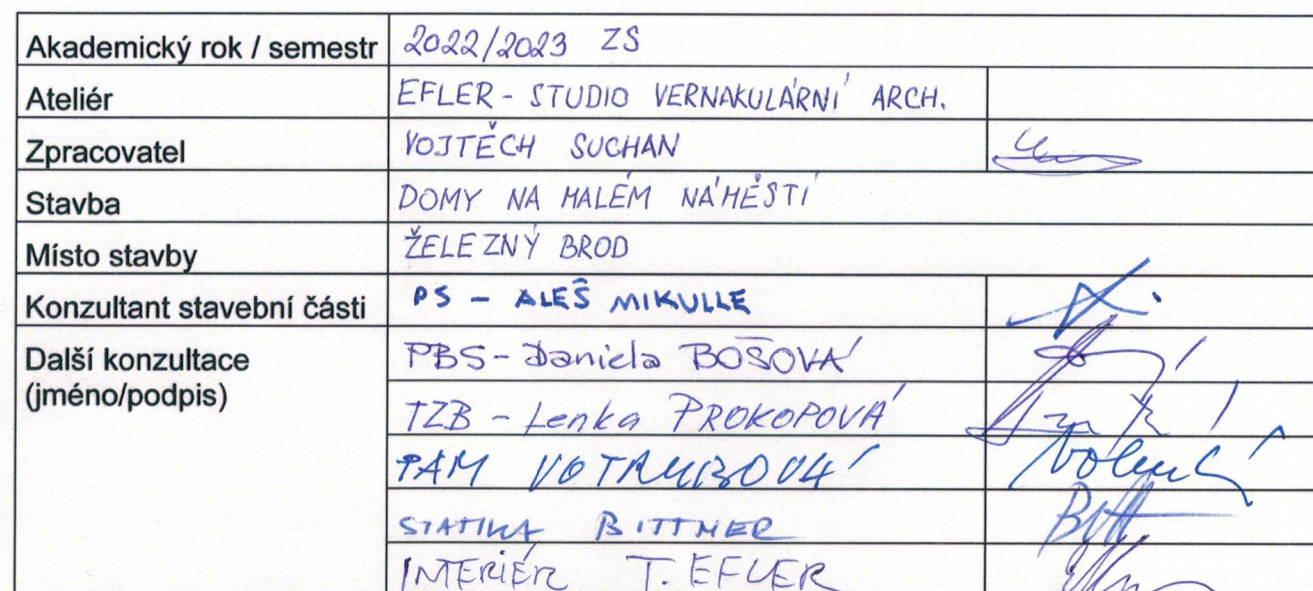 Akademický rok / semestr 2022/2023 ZS
Ateliér EFLER - STUDIO VERNAKULÁRNÍ ARCH.
Zpracovatel VOJTĚCH SUCHAN
Stavba DOMY NA MALÉM NÁMĚSTÍ
Místo stavby ŽELEZNÝ BROD
Konzultant stavební části PS - ALEŠ MIKULLE
Další konzultace PBS - Daniela BOŠOVÁ
(jméno/podpis) TZB - Lenka PROKOPOVÁ
PAM VOTRUBOVÁ
STATIKA BITTNER
INTERIÉR T. EFLER